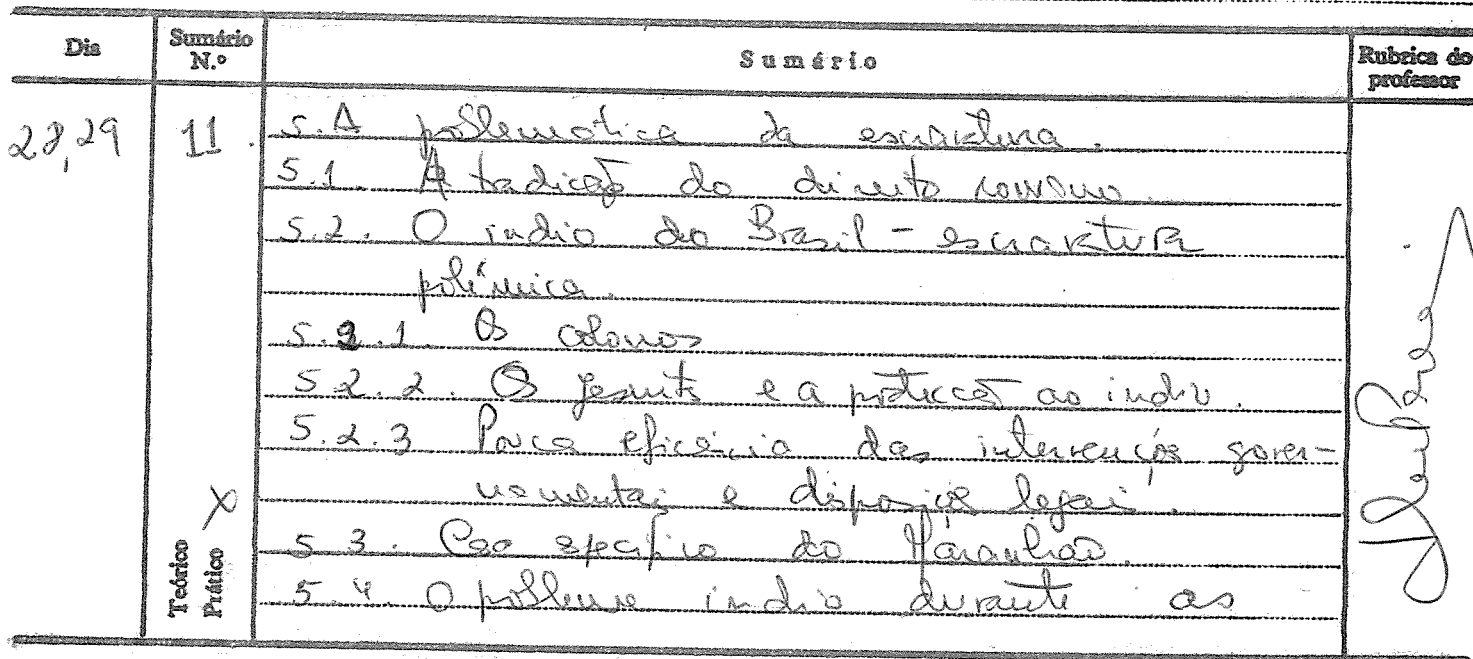 Dia
Sumário N.º
Sumário
Rubrica do professor
28,29
11.
5. A problemática da escravatura.
5.1. A tradição do direito romano.
5.2. O indio do Brasil - escravatura
polémica.
5.2.1. Os colonos
5.2.2. Os jesuitas e a protecção ao indio.
5.2.3 Pouca eficácia das intervenções gover-
namentais e disposições legais.
5.3. Caso específico do Maranhão.
5.4. O problema indio durante as
Teórico
Prático X